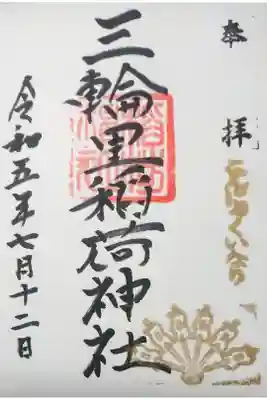 奉拝
三輪里稲荷神社
令和五年七月十二日